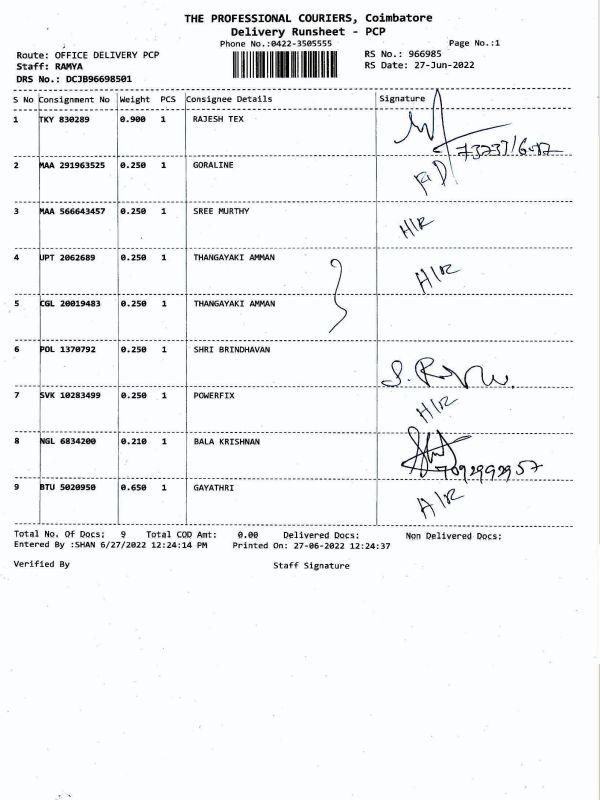 THE PROFESSIONAL COURIERS, Coimbatore
Delivery Runsheet - PCP
Phone No.:0422-3505555 Page No.:1
Route: OFFICE DELIVERY PCP RS No.: 966985
Staff: RAMYA RS Date: 27-Jun-2022
DRS No.: DCJB96698501
S No Consignment No Weight PCS Consignee Details Signature
1 TKY 830289 0.900 1 RAJESH TEX
2 MAA 291963525 0.250 1 GORALINE
3 MAA 566643457 0.250 1 SREE MURTHY H/R
4 UPT 2062689 0.250 1 THANGAYAKI AMMAN H/R
5 CGL 20019483 0.250 1 THANGAYAKI AMMAN
6 POL 1370792 0.250 1 SHRI BRINDHAVAN
7 SVK 10283499 0.250 1 POWERFIX H/R
8 NGL 6834200 0.210 1 BALA KRISHNAN
7092992957
9 BTU 5020950 0.650 1 GAYATHRI
Total No. Of Docs: 9 Total COD Amt: 0.00 Delivered Docs: Non Delivered Docs:
Entered By :SHAN 6/27/2022 12:24:14 PM Printed On: 27-06-2022 12:24:37
Verified By Staff Signature